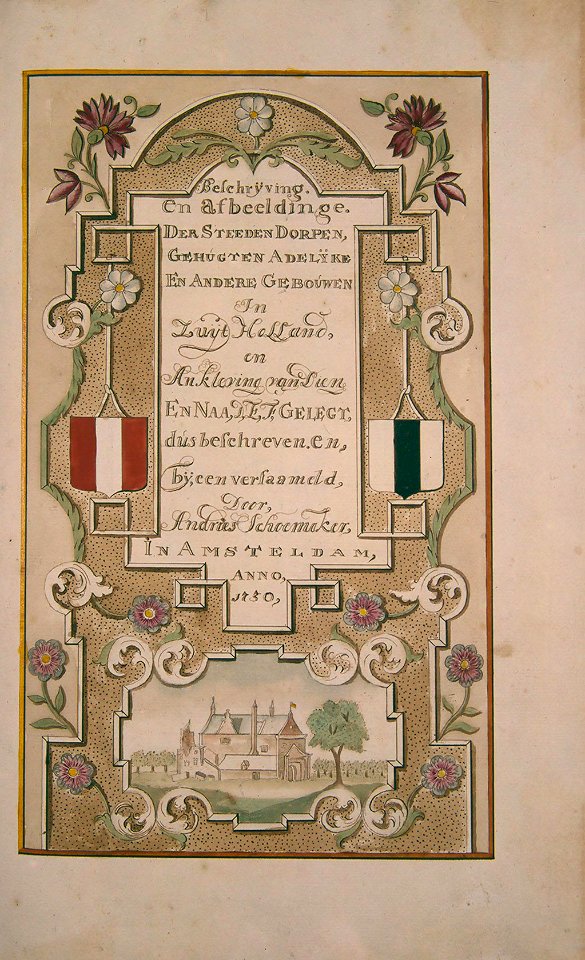 Beschrÿving.
en afbeeldinge.
DER STEEDEN DORPEN,
GEHUGTEN ADELŸKE
EN ANDERE GEBOUWEN
In
Zuÿt Holland,
en
Ankleving van Dien
EN NAA, GELEGT,
dus beschreven. en,
bÿ, een versaameld,
Door,
Andries Schoemaker,
IN AMSTELDAM,
ANNO,
1730,